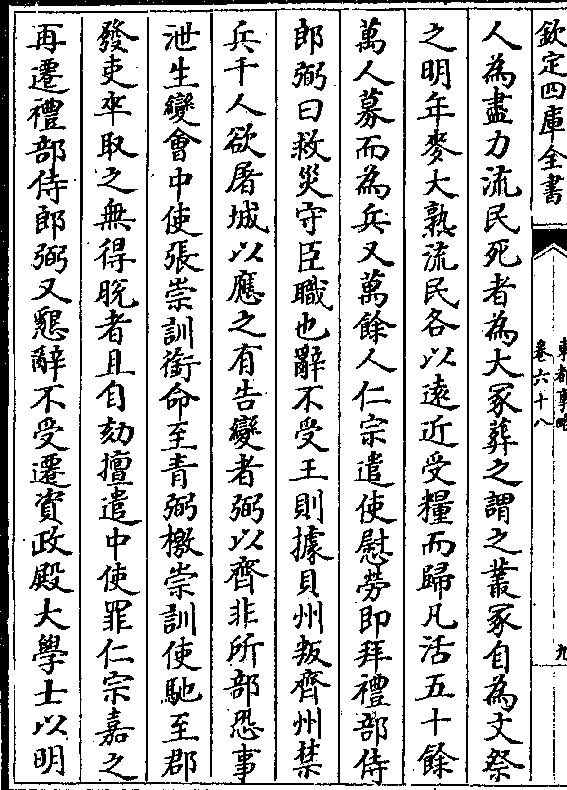 欽定四庫全書
東都事略
卷六十八
九
人為盡力流民死者為大冢葬之謂之叢冢自為文祭
之明年麥大熟流民各以遠近受糧而歸凡活五十餘
萬人募而為兵又萬餘人仁宗遣使慰勞即拜禮部侍
郎弼曰救災守臣職也辭不受王則據貝州叛齊州禁
兵千人欲屠城以應之有告變者弼以齊非所部恐事
泄生變會中使張崇訓銜命至青弼檄崇訓使馳至郡
發吏卒取之無得脫者且自劾擅遣中使罪仁宗嘉之
再遷禮部侍郎弼又懇辭不受遷資政殿大學士以明